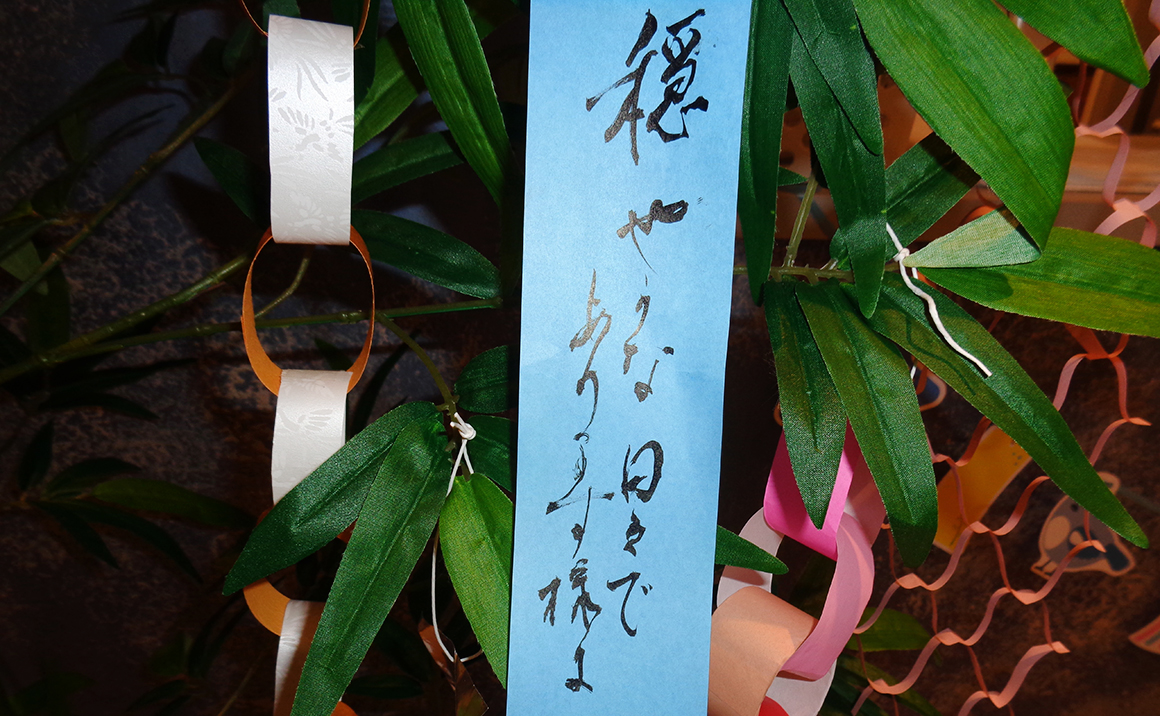 穏やかな日々で
あります様に